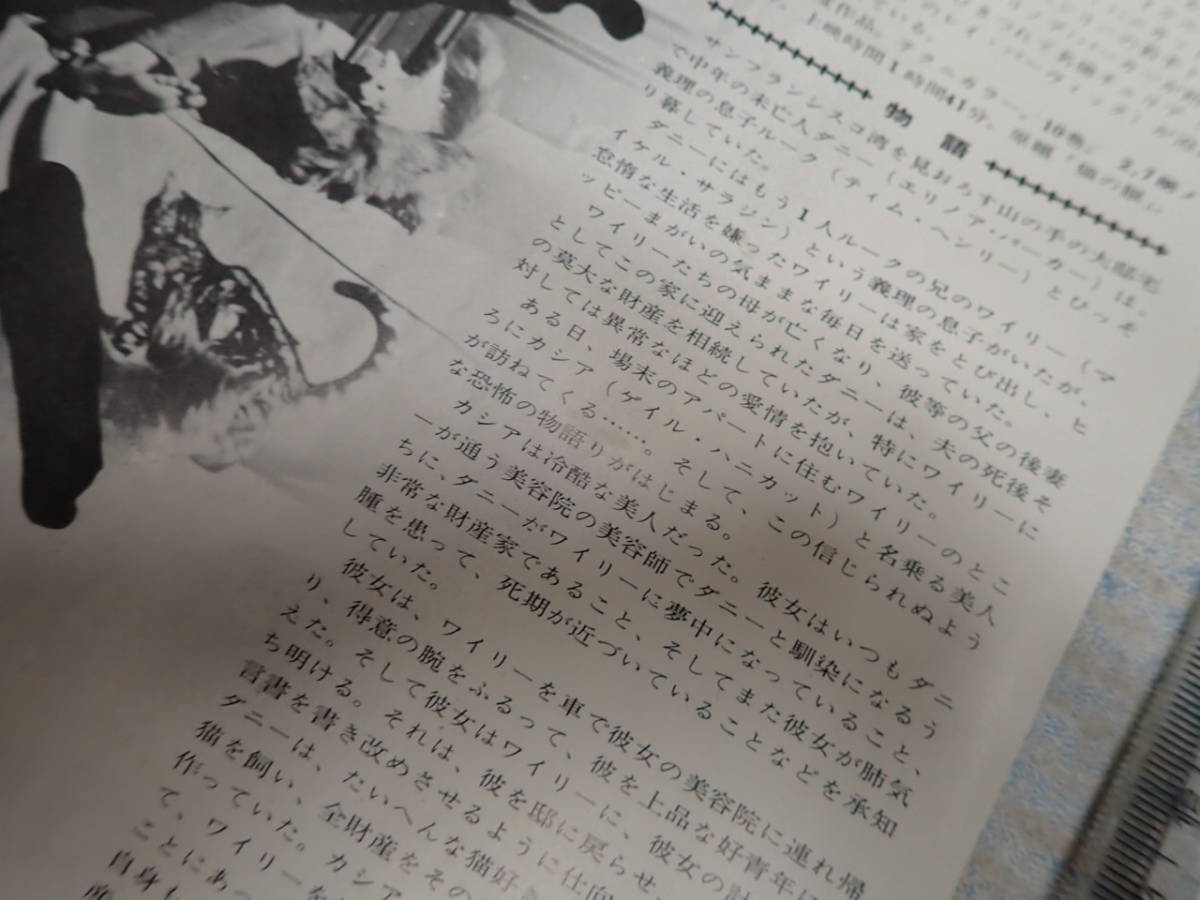 上映時間1時間41分。原題「猫の眼」。
物語
サンフランシスコ湾を見おろす山の手の大邸宅
で中年の未亡人ダニー（エリノア・パーカー）は、
義理の息子ルーク（ティム・ヘンリー）とひっそ
り暮していた。
ダニーにはもう1人ルークの兄のワイリー（マ
イケル・サラジン）という義理の息子がいたが、
怠惰な生活を嫌ったワイリーは家をとび出し、ヒ
ッピーまがいの気ままな毎日を送っていた。
ワイリーたちの母が亡くなり、彼等の父の後妻
としてこの家に迎えられたダニーは、夫の死後そ
の莫大な財産を相続していたが、特にワイリーに
対しては異常なほどの愛情を抱いていた。
ある日、場末のアパートに住むワイリーのとこ
ろにカシア（ゲイル・ハニカット）と名乗る美人
が訪ねてくる……。そして、この信じられぬよう
な恐怖の物語りがはじまる。
カシアは冷酷な美人だった。彼女はいつもダニ
ーが通う美容院の美容師でダニーと馴染になるう
ちに、ダニーがワイリーに夢中になっていること、
非常な財産家であること、そしてまた彼女が肺気
腫を患って、死期が近づいていることなどを承知
していた。
彼女は、ワイリーを車で彼女の美容院に連れ帰
り、得意の腕をふるって、彼を上品な好青年に
えた。そして彼女はワイリーに、彼女の計
ち明ける。それは、彼を邸に戻らせ、
言書を書き改めさせるように仕向
ダニーは、たいへんな猫好き
猫を飼い、全財産をその
作っていた。カシア
て、ワイリーを
ことにあっ
自身も
産